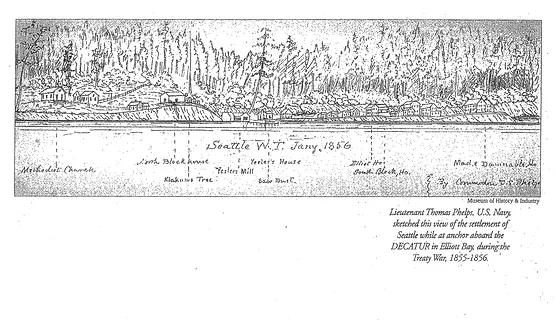 Seattle W.T. Jany. 1856
Methodist Church
North Blockhouse
Yesler's House
Yesler's Mill
Klakum's Tree
Saw Dust
Elliot Ho.
South Block Ho.
Mad. Damnable Ho.
By Commodore T.S. Phelps
Museum of History & Industry
Lieutenant Thomas Phelps, U.S. Navy,
sketched this view of the settlement of
Seattle while at anchor aboard the
DECATUR in Elliott Bay, during the
Treaty War, 1855-1856.